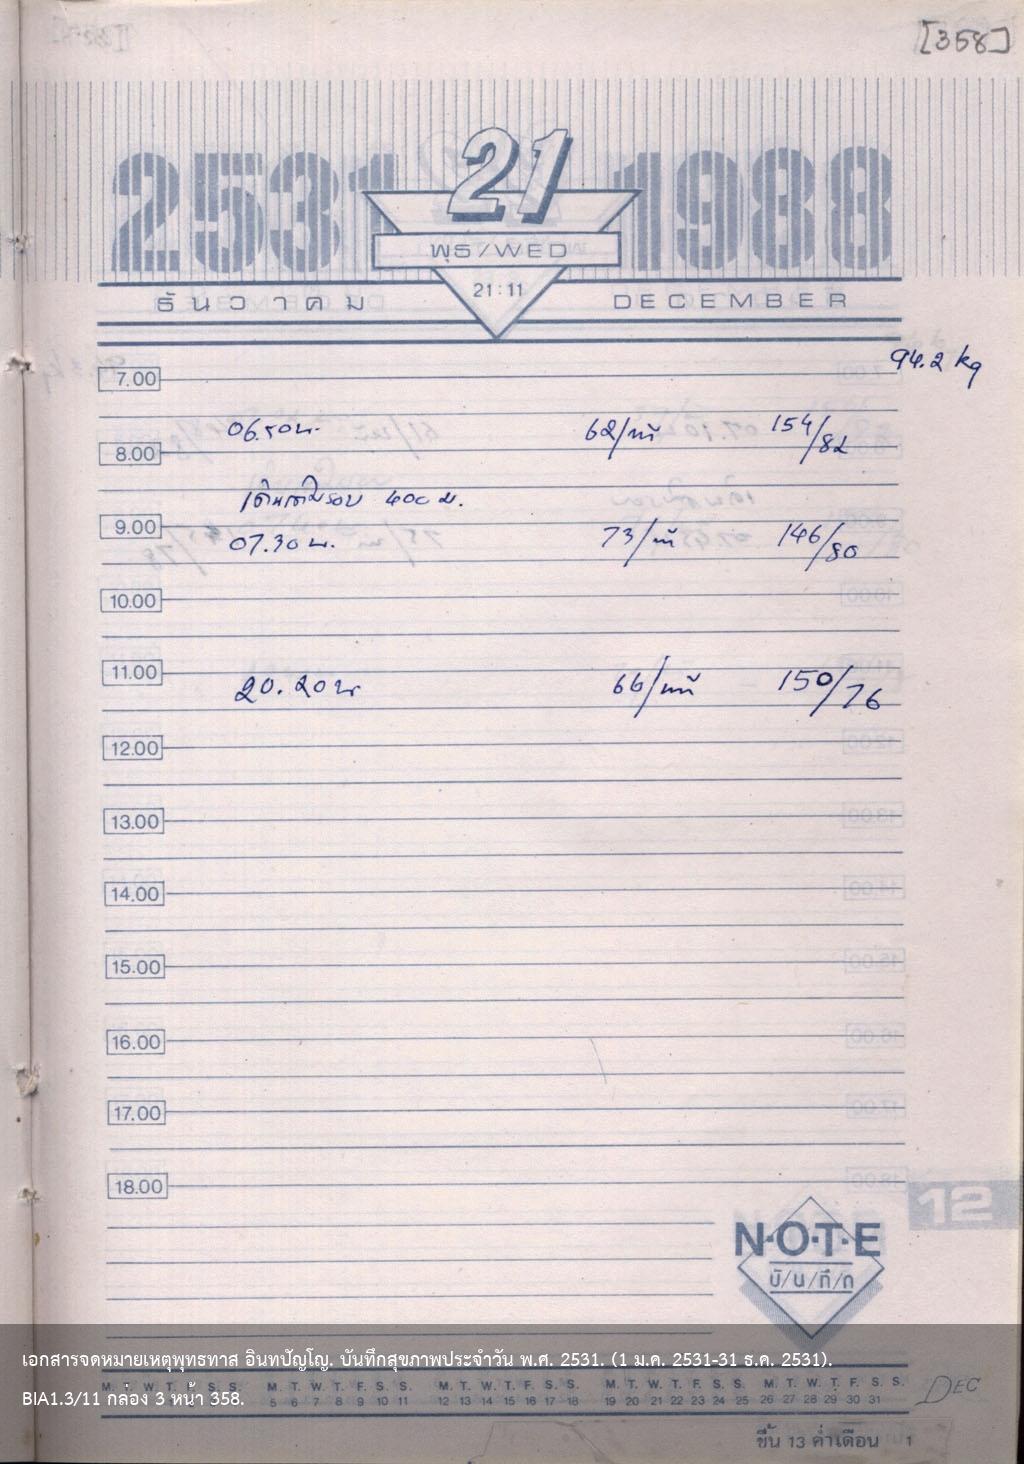 [358]
2531 21 1988
พุธ/WED
21:11
ธันวาคม DECEMBER
94.2 kg
7.00
06.50น. 62/นาที 154/82
8.00
เดินเต็มรอบ 400 ม.
9.00
07.30 น. 73/นาที 146/80
10.00
11.00
20.20น 66/นาที 150/76
12.00
13.00
14.00
15.00
16.00
17.00
18.00
12
N·O·T·E
บั/น/ทึ/ก
เอกสารจดหมายเหตุพุทธทาส อินทปัญโญ. บันทึกสุขภาพประจำวัน พ.ศ. 2531. (1 ม.ค. 2531-31 ธ.ค. 2531).
M. T. W. T. F. S. S. M. T. W. T. F. S. S. M. T. W. T. F. S. S. M. T. W. T. F. S. S. M. T. W. T. F. S. S.
BIA1.3/11 กล่อง 3 หน้า 358.
5 6 7 8 9 10 11 12 13 14 15 16 17 18 19 20 21 22 23 24 25 26 27 28 29 30 31
DEC
ขึ้น 13 ค่ำเดือน 1